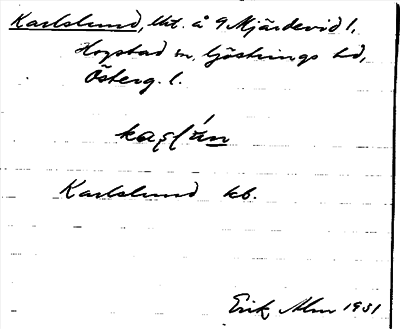 Karlslund, lht. å 9 Mjärdevid 1,
Hogstad sn, Göstrings hd,
Österg. l.
Karlslund kb.
Erik Alm 1931